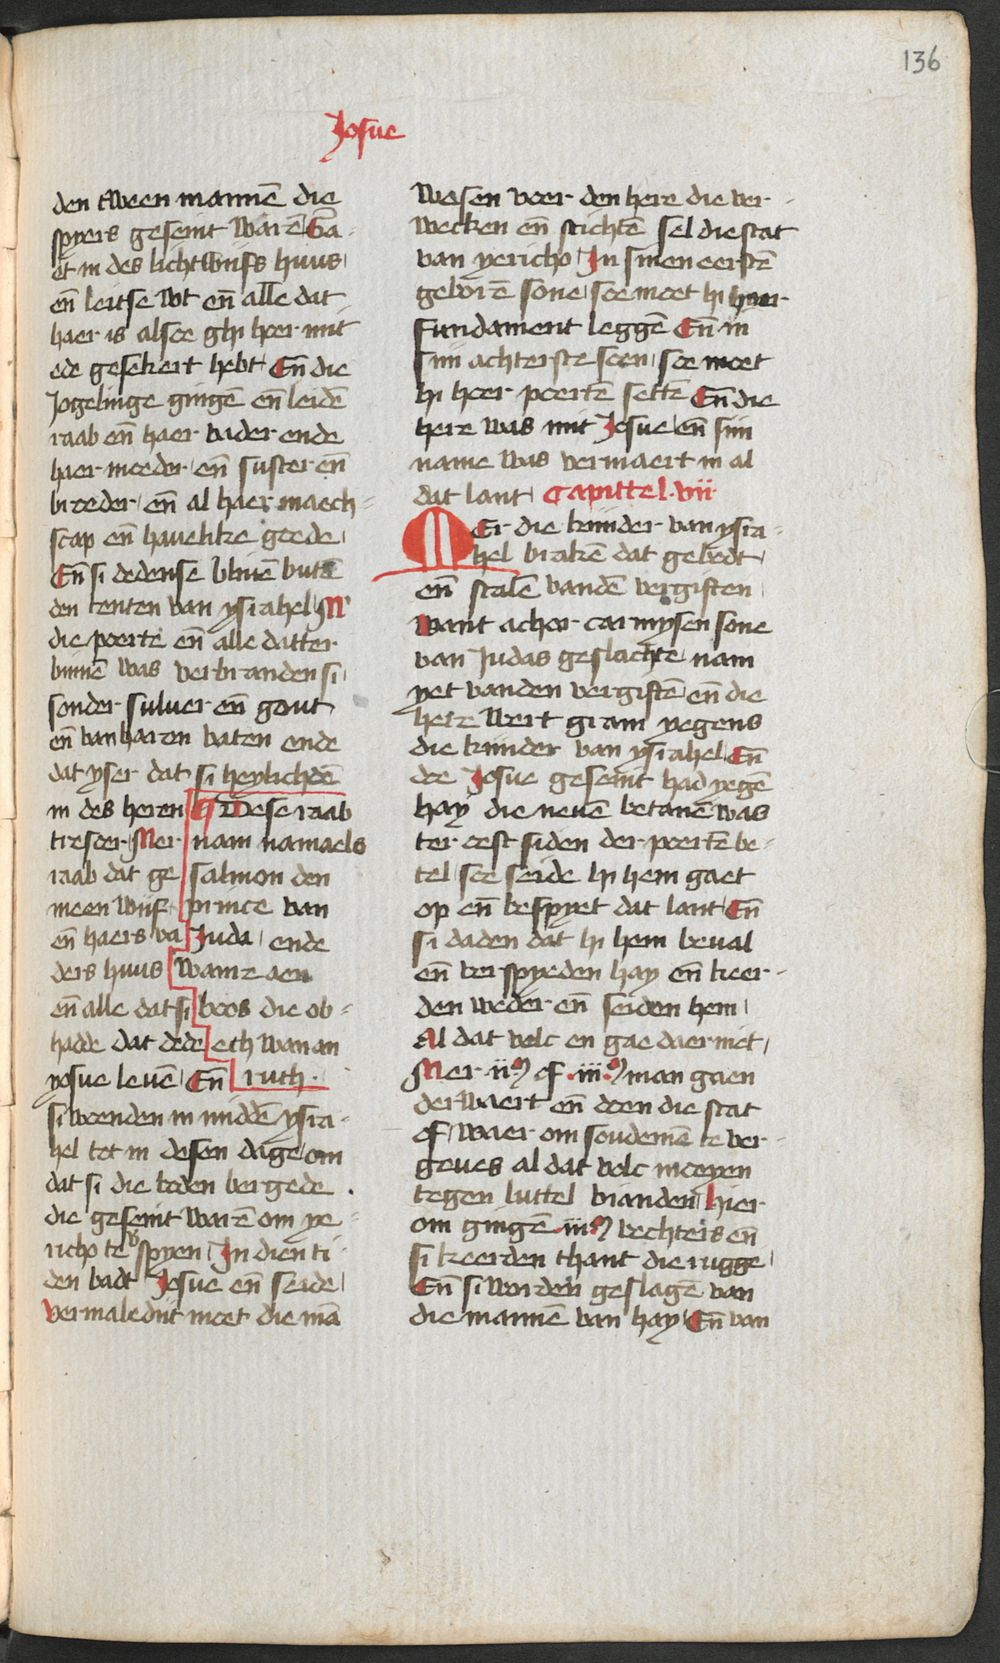 136
Josue
den tween mannē die
spyers geseint warē Ga-
et in des lichtwijfs huus
en̄ leitse wt en̄ alle dat
haer is alsoe ghi heer mit
ede gesekert hebt En̄ die
Jogelinge gingē en̄ leidē
raab en̄ haer vader ende
haer moeder en̄ suster en̄
broeder en̄ al haer maech-
scap en̄ havelike goede
En̄ si dedense bliuē butē
den tenten van ysrahel M'
die poerte en̄ alle datter
binnē was verbranden si
sonder suluer en̄ gout
en̄ van haren vaten ende
dat yser dat si heylichdē
in des heren
tresoer Mer
raab dat ge
meen wijf
en̄ haers va
ders huus
en̄ alle dat si
hadde dat dede
yosue leuē En̄
¶ Dese raab
nam namaels
salmon den
prince van
Juda ende
wan r aen
boos die ob-
eth wan an
ruth.
si woenden in middē ysra-
hel tot in desen dage om
dat si die boden bergede
die geseint warē om ye-
richo te vspyen In dien ti-
den badt Josue en̄ seide
vermaledijt moet die mā
wesen voer den here die ver-
wecken en̄ stichtē sel die stat
van yericho In sinen eerstē
geborē sone soe moet hi hoer
fundament leggē En̄ in
sijn achterste soen soe moet
hi hoer poertē settē En̄ die
here was mit Josue en̄ sijn
name was vermaert in al
dat lant Capittel .vii.
MEr die kinder van ysra-
hel brakē dat gebodt
en̄ stalē vandē vergiften
Want achor carmysen sone
van Judas geslachte nam
yet vanden vergiftē en̄ die
here wert gram yegens
die kinder van ysrahel En̄
doe Josue geseint had yegē
hay die neuē betanē was
ter oest siden der poertē be-
tel soe seide hi hem gaet
op en̄ bespyet dat lant En̄
si daden dat hi hem beual
en̄ verspyeden hay en̄ keer-
den weder en̄ seiden hem
Al dat volc en gae daer niet
Mer .ii.M of .iii.M man gaen
derwaert en̄ doen die stat
of Waer om soudemē te ver-
geues al dat volc moeyen
tegen luttel vianden hier
om gingē .iii.M vechters en̄
si keerden thant die rugge
En̄ si worden geslagē van
die mannē van hay En̄ van